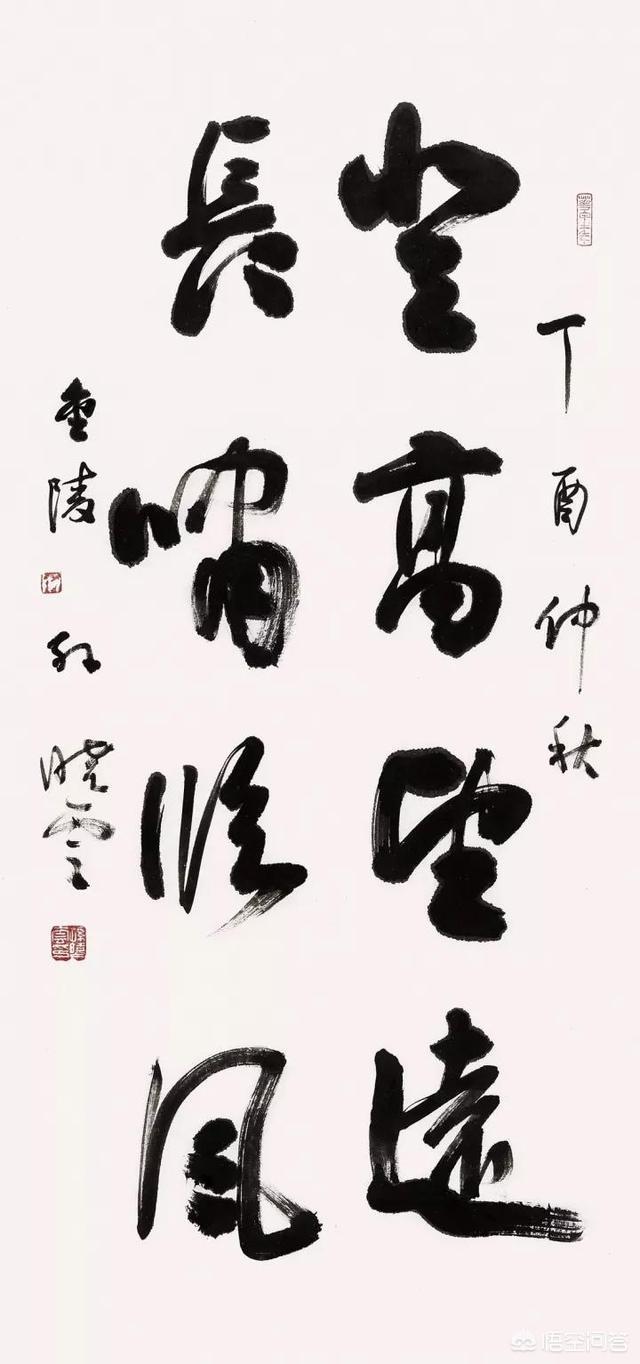 丁酉仲秋
登高望遠
長嘯臨風
金陵孫曉雲
悟空问答